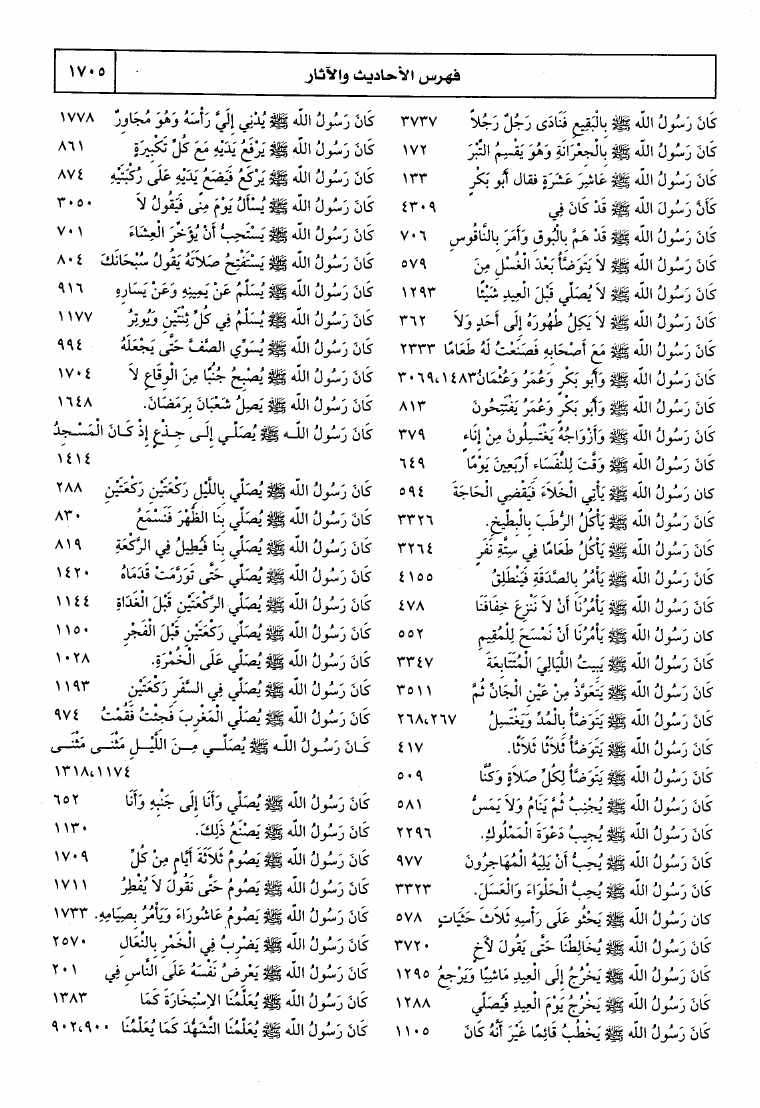 فهرس الأحاديث والآثار ١٧٠٥
كَانَ رَسُولُ اللّه ﷺ بِالْبَقِيعِ فَنَادَى رَجُلٌ رَجُلاً ٣٧٣٧
كَانَ رَسُولُ اللّه ﷺ بِالْجِعْرَانَةِ وَهُوَ يَقْسِمُ التِّبْرَ ١٧٢
كَانَ رَسُولُ اللّه ﷺ عَاشِرَ عَشَرَةٍ فقال أَبُو بَكْرٍ ١٣٣
كَأَنَّ رَسُولَ اللّه ﷺ قَدْ كَانَ فِي ٤٣٠٩
كَانَ رَسُولُ اللّه ﷺ قَدْ هَمَّ بِالْبُوقِ وَأَمَرَ بِالنَّاقُوسِ ٧٠٦
كَانَ رَسُولُ اللّه ﷺ لاَ يَتَوَضَّأُ بَعْدَ الْغُسْلِ مِنَ ٥٧٩
كَانَ رَسُولُ اللّه ﷺ لاَ يُصَلِّي قَبْلَ الْعِيدِ شَيْئًا ١٢٩٣
كَانَ رَسُولُ اللّه ﷺ لاَ يَكِلُ طُهُورَهُ إِلَى أَحَدٍ وَلاَ ٣٦٢
كَانَ رَسُولُ اللّه ﷺ مَعَ أَصْحَابِهِ فَصَنَعْتُ لَهُ طَعَامًا ٢٣٣٣
كَانَ رَسُولُ اللّه ﷺ وَأَبُو بَكْرٍ وَعُمَرُ وَعُثْمَانُ ٣٠٦٩،١٤٨٣
كَانَ رَسُولُ اللّه ﷺ وَأَبُو بَكْرٍ وَعُمَرُ يَفْتَتِحُونَ ٨١٣
كَانَ رَسُولُ اللّه ﷺ وَأَزْوَاجُهُ يَغْتَسِلُونَ مِنْ إِنَاءٍ ٣٧٩
كَانَ رَسُولُ اللّه ﷺ وَقَّتَ لِلنُّفَسَاءِ أَرْبَعِينَ يَوْمًا ٦٤٩
كان رَسُولُ اللّه ﷺ يَأْتِي الْخَلاَءَ فَيَقْضِي الْحَاجَةَ ٥٩٤
كَانَ رَسُولُ اللّه ﷺ يَأْكُلُ الرُّطَبَ بِالْبِطِّيخِ. ٣٣٢٦
كَانَ رَسُولُ اللّه ﷺ يَأْكُلُ طَعَامًا فِي سِتَّةِ نَفَرٍ ٣٢٦٤
كَانَ رَسُولُ اللّه ﷺ يَأْمُرُ بِالصَّدَقَةِ فَيَنْطَلِقُ ٤١٥٥
كَانَ رَسُولُ اللّه ﷺ يَأْمُرُنَا أَنْ لاَ نَنْزِعَ خِفَافَنَا ٤٧٨
كان رَسُولُ اللّه ﷺ يَأْمُرُنَا أَنْ نَمْسَحَ لِلْمُقِيمِ ٥٥٢
كَانَ رَسُولُ اللّه ﷺ يَبِيتُ اللَّيَالِيَ الْمُتَتَابِعَةَ ٣٣٤٧
كَانَ رَسُولُ اللّه ﷺ يَتَعَوَّذُ مِنْ عَيْنِ الْجَانِّ ثُمَّ ٣٥١١
كَانَ رَسُولُ اللّه ﷺ يَتَوَضَّأُ بِالْمُدِّ وَيَغْتَسِلُ ٢٦٨،٢٦٧
كَانَ رَسُولُ اللّه ﷺ يَتَوَضَّأُ ثَلاَثًا ثَلاَثًا. ٤١٧
كَانَ رَسُولُ اللّه ﷺ يَتَوَضَّأُ لِكُلِّ صَلاَةٍ وَكُنَّا ٥٠٩
كَانَ رَسُولُ اللّه ﷺ يُجْنِبُ ثُمَّ يَنَامُ وَلاَ يَمَسُّ ٥٨١
كَانَ رَسُولُ اللّه ﷺ يُجِيبُ دَعْوَةَ الْمَمْلُوكِ. ٢٢٩٦
كَانَ رَسُولُ اللّه ﷺ يُحِبُّ أَنْ يَلِيَهُ الْمُهَاجِرُونَ ٩٧٧
كَانَ رَسُولُ اللّه ﷺ يُحِبُّ الْحَلْوَاءَ وَالْعَسَلَ. ٣٣٢٣
كان رَسُولُ اللّه ﷺ يَحْثُو عَلَى رَأْسِهِ ثَلاَثَ حَثَيَاتٍ ٥٧٨
كَانَ رَسُولُ اللّه ﷺ يُخَالِطُنَا حَتَّى يَقُولَ لأَخٍ ٣٧٢٠
كَانَ رَسُولُ اللّه ﷺ يَخْرُجُ إِلَى الْعِيدِ مَاشِيًا وَيَرْجِعُ ١٢٩٥
كَانَ رَسُولُ اللّه ﷺ يَخْرُجُ يَوْمَ الْعِيدِ فَيُصَلِّي ١٢٨٨
كَانَ رَسُولُ اللّه ﷺ يَخْطُبُ قَائِمًا غَيْرَ أَنَّهُ كَانَ ١١٠٥
كَانَ رَسُولُ اللّه ﷺ يُدْنِي إِلَيَّ رَأْسَهُ وَهُوَ مُجَاوِرٌ ١٧٧٨
كَانَ رَسُولُ اللّه ﷺ يَرْفَعُ يَدَيْهِ مَعَ كُلِّ تَكْبِيرَةٍ ٨٦١
كَانَ رَسُولُ اللّه ﷺ يَرْكَعُ فَيَضَعُ يَدَيْهِ عَلَى رُكْبَتَيْهِ ٨٧٤
كَانَ رَسُولُ اللّه ﷺ يُسْأَلُ يَوْمَ مِنًى فَيَقُولُ لاَ ٣٠٥٠
كَانَ رَسُولُ اللّه ﷺ يَسْتَحِبُّ أَنْ يُؤَخِّرَ الْعِشَاءَ ٧٠١
كَانَ رَسُولُ اللّه ﷺ يَسْتَفْتِحُ صَلاَتَهُ يَقُولُ سُبْحَانَكَ ٨٠٤
كَانَ رَسُولُ اللّه ﷺ يُسَلِّمُ عَنْ يَمِينِهِ وَعَنْ يَسَارِهِ ٩١٦
كَانَ رَسُولُ اللّه ﷺ يُسَلِّمُ فِي كُلِّ ثِنْتَيْنِ وَيُوتِرُ ١١٧٧
كَانَ رَسُولُ اللّه ﷺ يُسَوِّي الصَّفَّ حَتَّى يَجْعَلَهُ ٩٩٤
كَانَ رَسُولُ اللّه ﷺ يُصْبِحُ جُنُبًا مِنَ الْوِقَاعِ لاَ ١٧٠٤
كَانَ رَسُولُ اللّه ﷺ يَصِلُ شَعْبَانَ بِرَمَضَانَ. ١٦٤٨
كَانَ رَسُولُ اللّه ﷺ يُصَلِّي إِلَى جِذْعٍ إِذْ كَانَ الْمَسْجِدُ
١٤١٤
كَانَ رَسُولُ اللّه ﷺ يُصَلِّي بِاللَّيْلِ رَكْعَتَيْنِ رَكْعَتَيْنِ ٢٨٨
كَانَ رَسُولُ اللّه ﷺ يُصَلِّي بِنَا الظُّهْرَ فَنَسْمَعُ ٨٣٠
كَانَ رَسُولُ اللّه ﷺ يُصَلِّي بِنَا فَيُطِيلُ فِي الرَّكْعَةِ ٨١٩
كَانَ رَسُولُ اللّه ﷺ يُصَلِّي حَتَّى تَوَرَّمَتْ قَدَمَاهُ ١٤٢٠
كَانَ رَسُولُ اللّه ﷺ يُصَلِّي الرَّكْعَتَيْنِ قَبْلَ الْغَدَاةِ ١١٤٤
كَانَ رَسُولُ اللّه ﷺ يُصَلِّي رَكْعَتَيْنِ قَبْلَ الْفَجْرِ ١١٥٠
كَانَ رَسُولُ اللّه ﷺ يُصَلِّي عَلَى الْخُمْرَةِ. ١٠٢٨
كَانَ رَسُولُ اللّه ﷺ يُصَلِّي فِي السَّفَرِ رَكْعَتَيْنِ ١١٩٣
كَانَ رَسُولُ اللّه ﷺ يُصَلِّي الْمَغْرِبَ فَجِئْتُ فَقُمْتُ ٩٧٤
كَانَ رَسُولُ اللّه ﷺ يُصَلِّي مِنَ اللَّيْلِ مَثْنَى مَثْنَى
١٣١٨،١١٧٤
كَانَ رَسُولُ اللّه ﷺ يُصَلِّي وَأَنَا إِلَى جَنْبِهِ وَأَنَا ٦٥٢
كَانَ رَسُولُ اللّه ﷺ يَصْنَعُ ذَلِكَ. ١١٣٠
كَانَ رَسُولُ اللّه ﷺ يَصُومُ ثَلاَثَةَ أَيَّامٍ مِنْ كُلِّ ١٧٠٩
كَانَ رَسُولُ اللّه ﷺ يَصُومُ حَتَّى نَقُولَ لاَ يُفْطِرُ ١٧١١
كَانَ رَسُولُ اللّه ﷺ يَصُومُ عَاشُورَاءَ وَيَأْمُرُ بِصِيَامِهِ. ١٧٣٣
كَانَ رَسُولُ اللّه ﷺ يَضْرِبُ فِي الْخَمْرِ بِالنِّعَالِ ٢٥٧٠
كَانَ رَسُولُ اللّه ﷺ يَعْرِضُ نَفْسَهُ عَلَى النَّاسِ فِي ٢٠١
كَانَ رَسُولُ اللّه ﷺ يُعَلِّمُنَا الاِسْتِخَارَةَ كَمَا ١٣٨٣
كَانَ رَسُولُ اللّه ﷺ يُعَلِّمُنَا التَّشَهُّدَ كَمَا يُعَلِّمُنَا ٩٠٢،٩٠٠